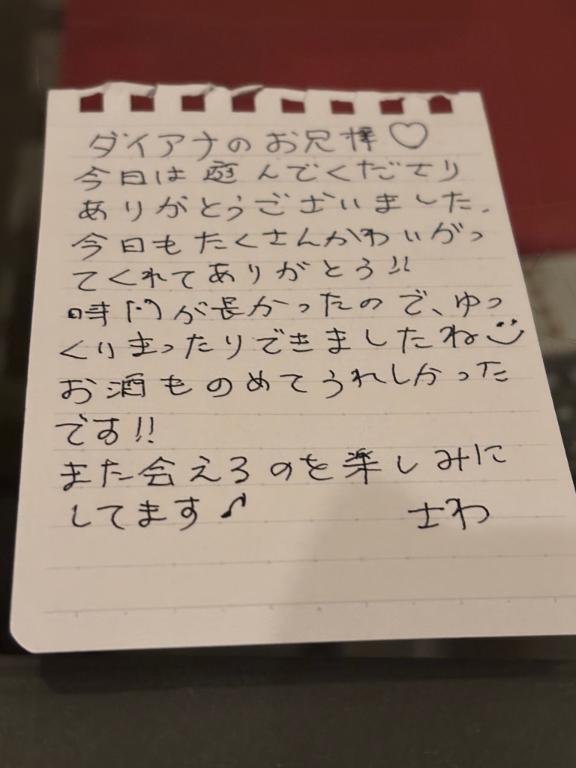 ダイアナのお兄様♡
今日は遊んでくださり
ありがとうございました。
今日もたくさんかわいがっ
てくれてありがとう!!
時間が長かったので、ゆっ
くりまったりできましたね
お酒ものめてうれしかった
です!!
また会えるのを楽しみに
してます♪
さわ